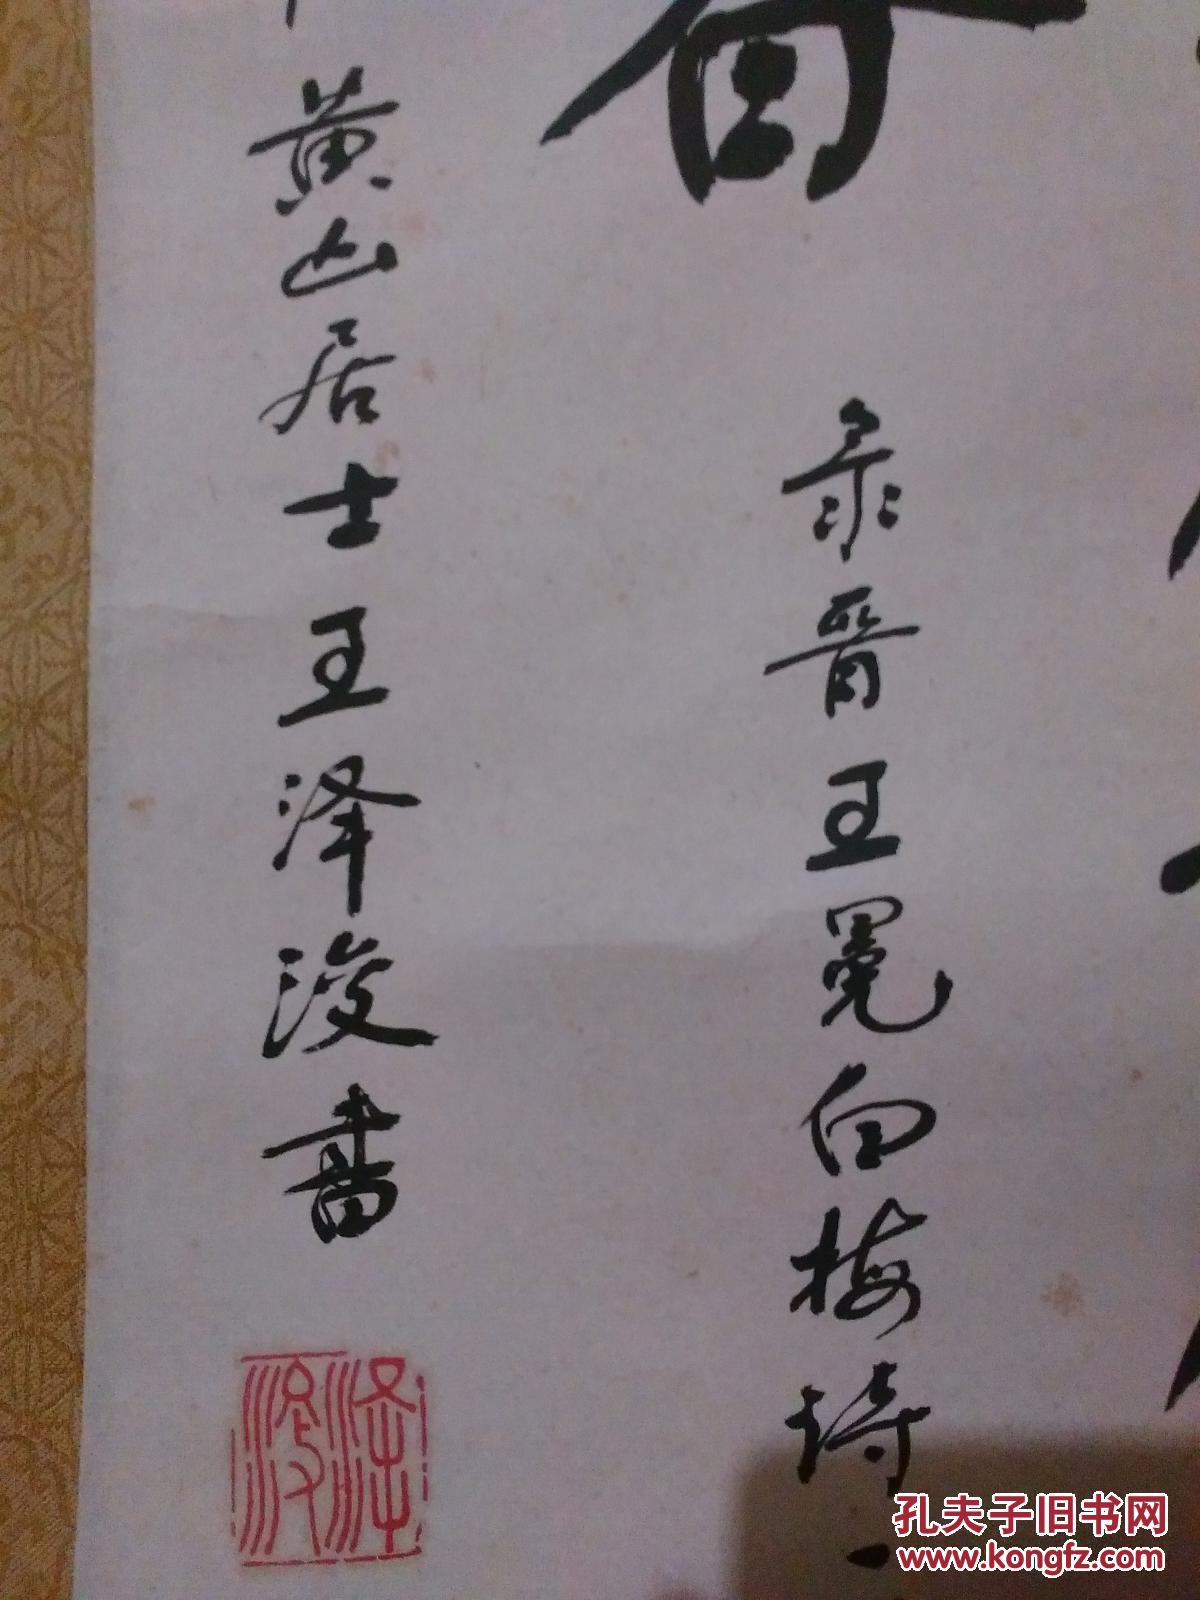 录晋王冕白梅诗一
黄山居士王泽浚书
泽浚
孔夫子旧书网
www.kongfz.com